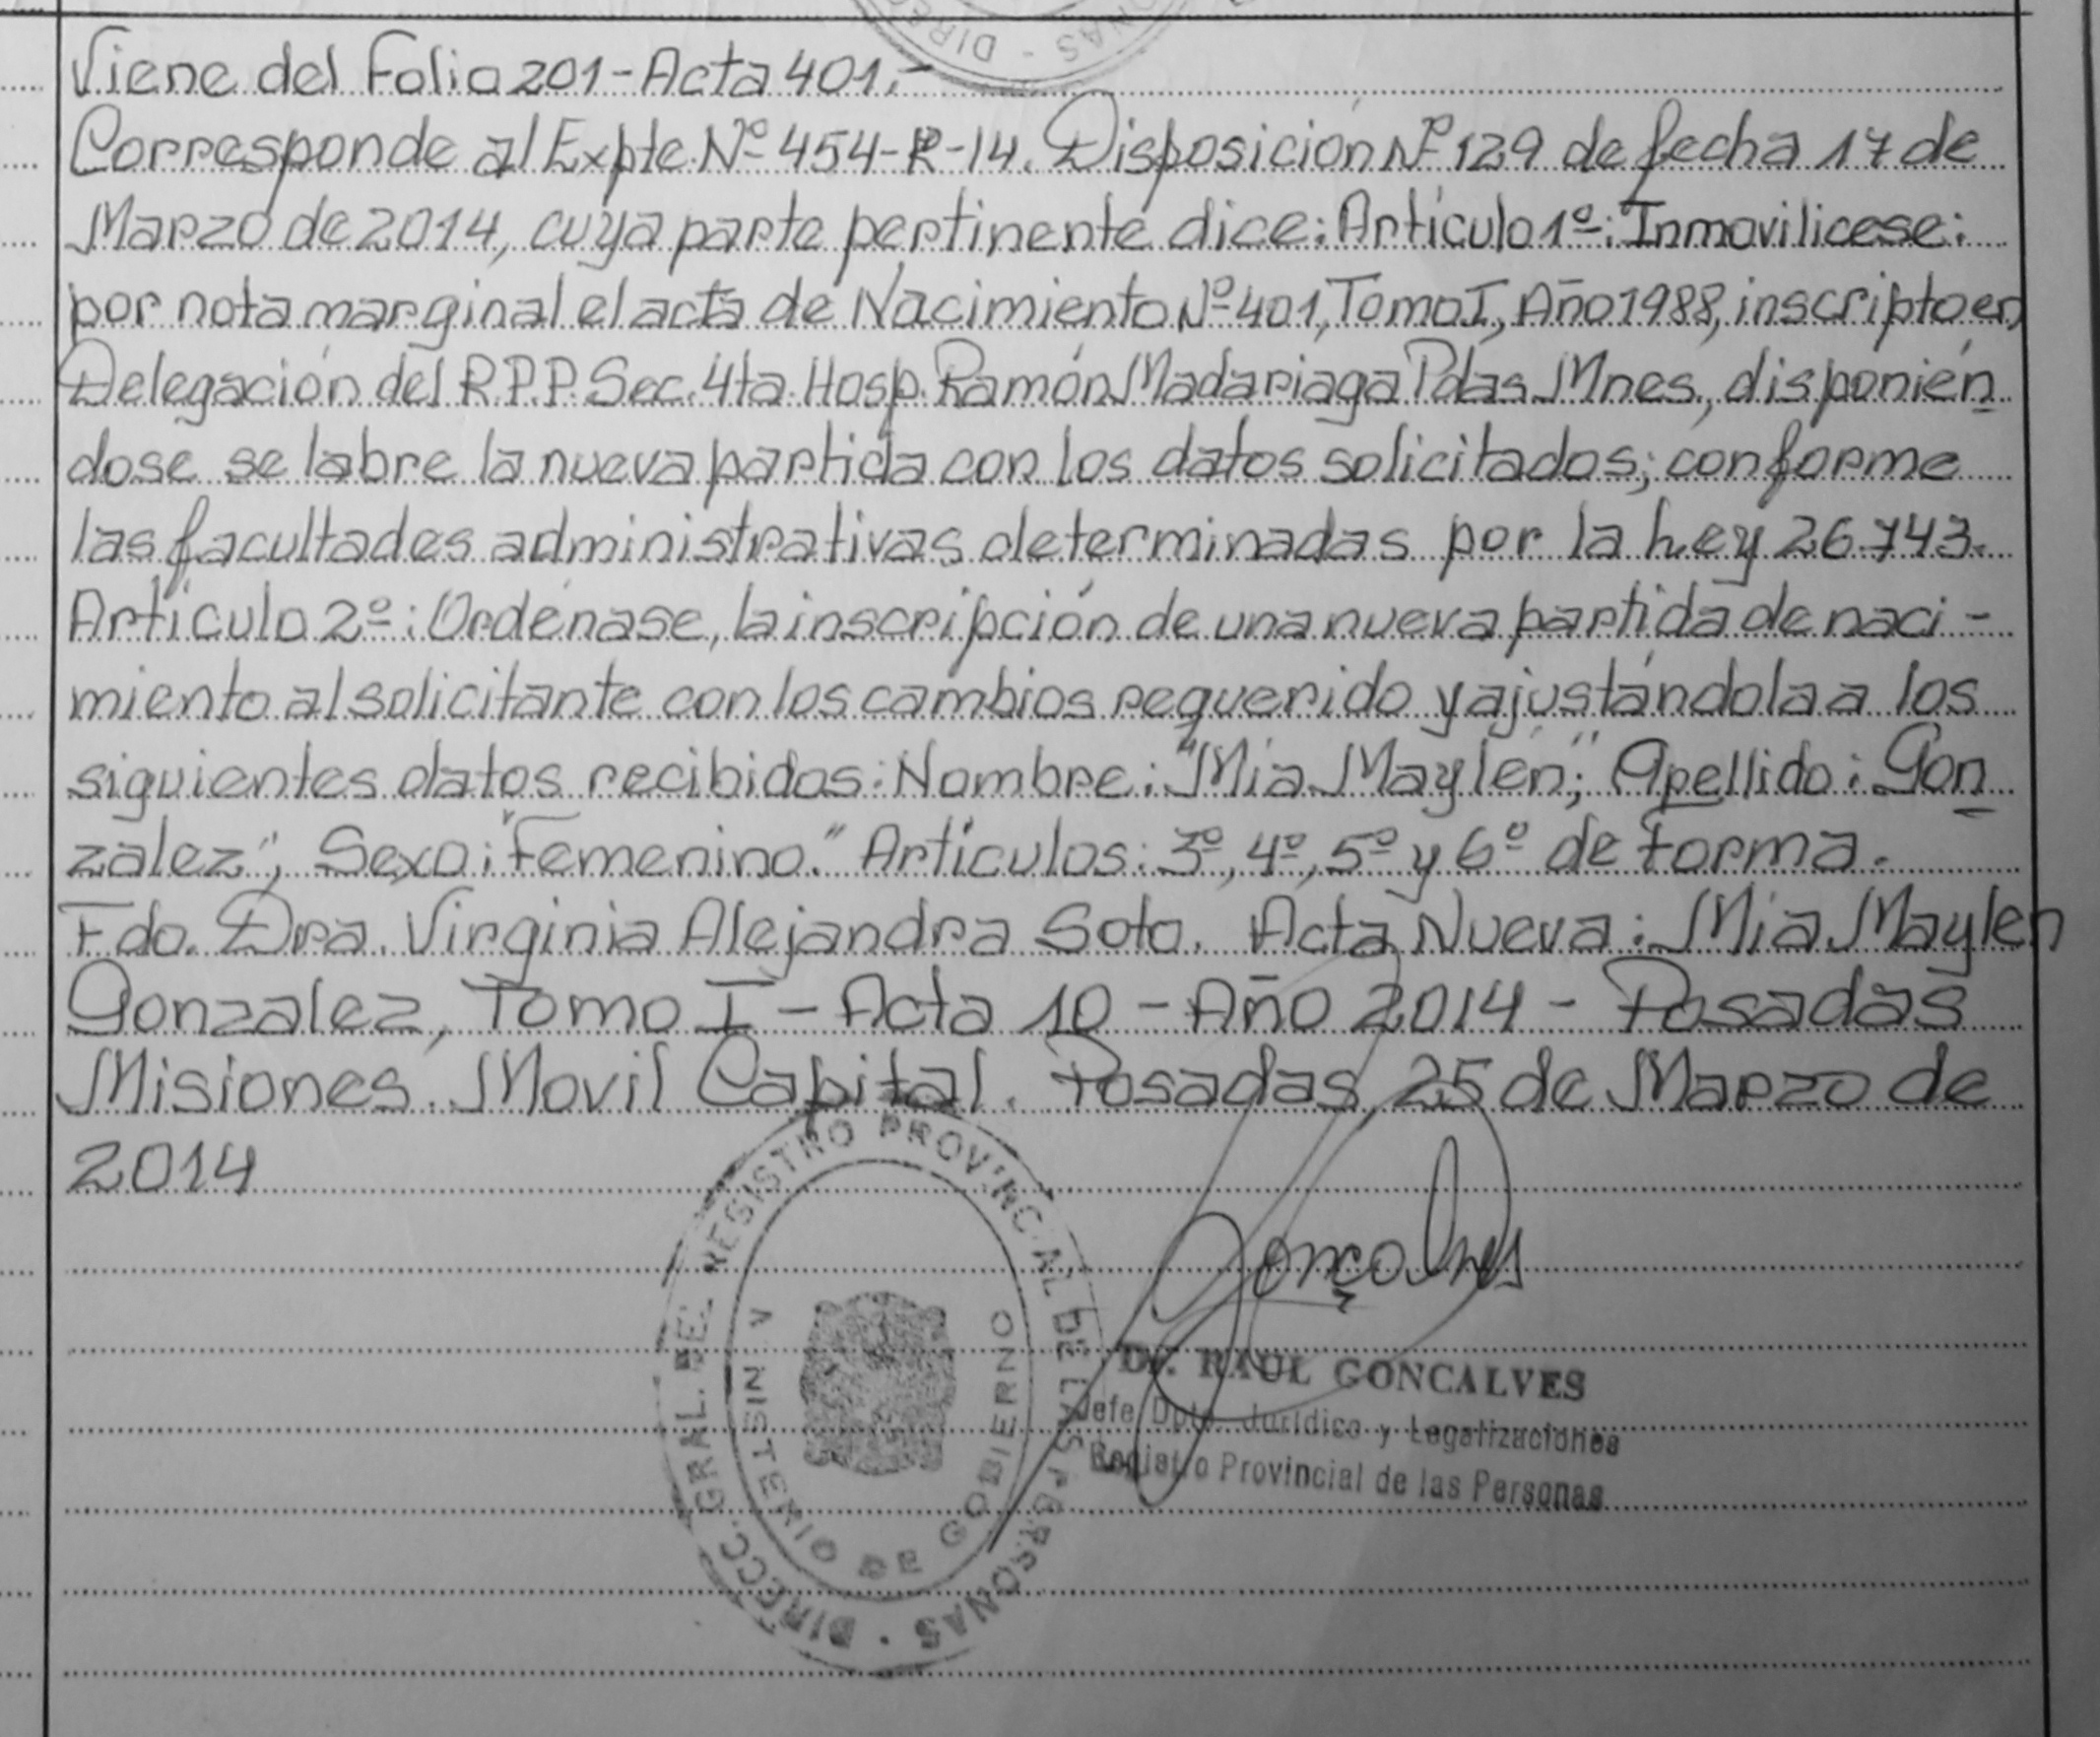 Viene del Folio 201 - Acta 401.-
Corresponde al Expte. Nº 454-R-14. Disposición Nº 129 de fecha 17 de
Marzo de 2014, cuya parte pertinente dice: Artículo 1º: Inmovilicese:
por nota marginal el acta de Nacimiento Nº 401, Tomo I, Año 1988, inscripto en
Delegación del R.P.P. Sec. 4ta. Hosp. Ramón Madariaga Pdas. Mnes., disponien
dose se labre la nueva partida con los datos solicitados; conforme
las facultades administrativas determinadas por la Ley 26.743.
Artículo 2º: Ordénase, la inscripción de una nueva partida de naci-
miento al solicitante con los cambios requerido y ajustándola a los
siguientes datos recibidos: Nombre: "Mia Maylén"; Apellido: Gon
zalez", Sexo: "Femenino." Artículos: 3º, 4º, 5º y 6º de forma.
Fdo. Dra. Virginia Alejandra Soto. Acta Nueva: Mia Maylen
Gonzalez, Tomo I - Acta 10 - Año 2014 - Posadas
Misiones. Movil Capital. Posadas, 25 de Marzo de
2014
DIRECC. GRAL. DEL REGISTRO PROVINCIAL DE LAS PERSONAS
MINISTERIO DE GOBIERNO
Gonçalves
Dr. RAUL GONCALVES
Jefe Dpto. Jurídico y Legalizaciones
Registro Provincial de las Personas